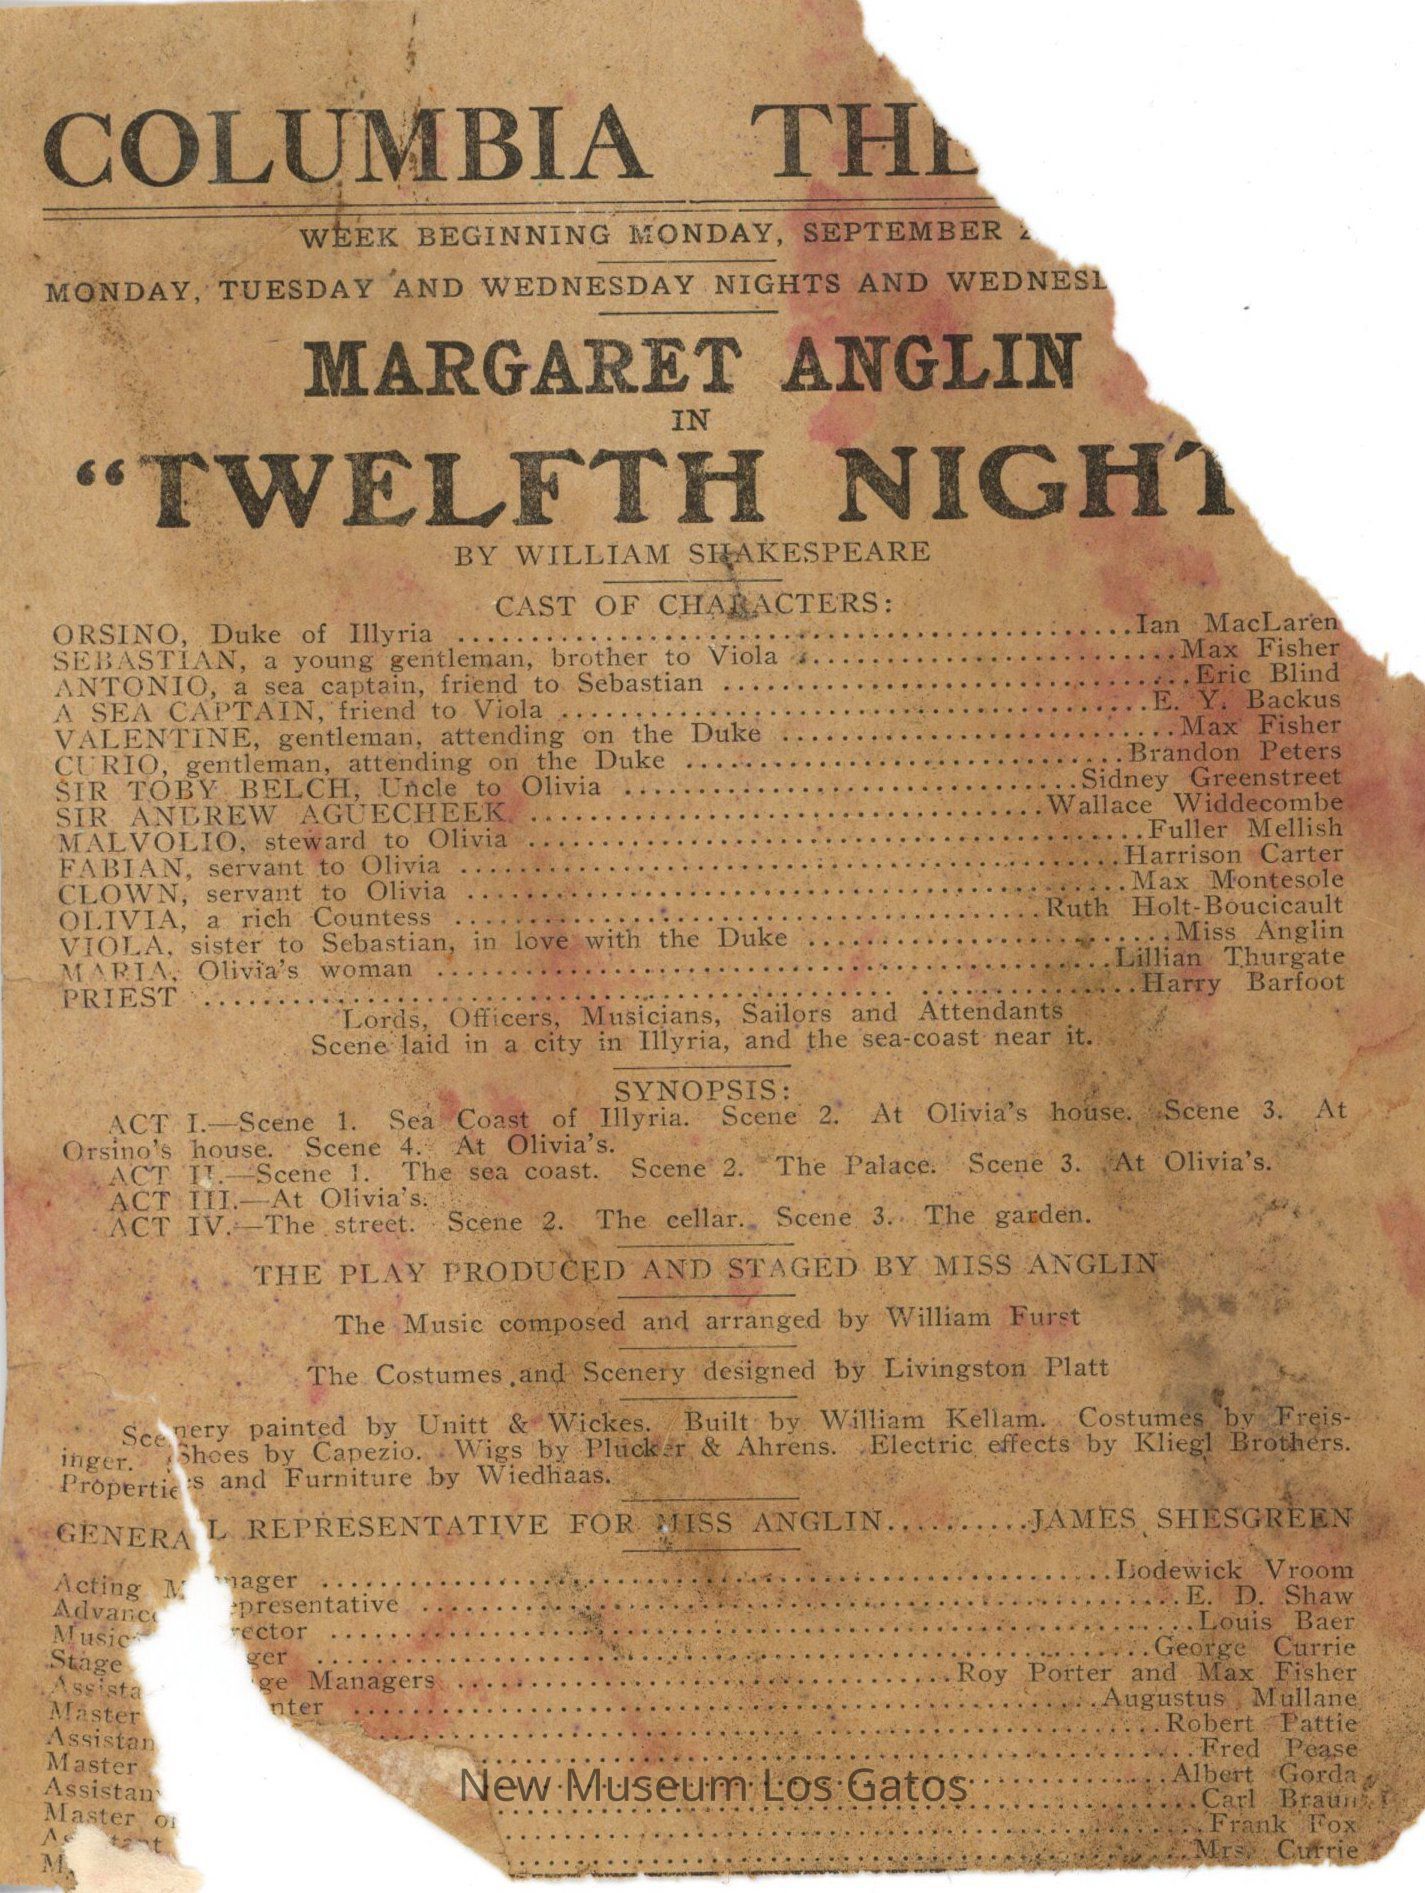 COLUMBIA THE
WEEK BEGINNING MONDAY, SEPTEMBER
MONDAY, TUESDAY AND WEDNESDAY NIGHTS AND WEDNES
MARGARET ANGLIN
IN
"TWELFTH NIGHT
BY WILLIAM SHAKESPEARE
CAST OF CHARACTERS:
ORSINO, Duke of Illyria ........ Ian MacLaren
SEBASTIAN, a young gentleman, brother to Viola ........ Max Fisher
ANTONIO, a sea captain, friend to Sebastian ........ Eric Blind
A SEA CAPTAIN, friend to Viola ........ E. Y. Backus
VALENTINE, gentleman, attending on the Duke ........ Max Fisher
CURIO, gentleman, attending on the Duke ........ Brandon Peters
SIR TOBY BELCH, Uncle to Olivia ........ Sidney Greenstreet
SIR ANDREW AGUECHEEK ........ Wallace Widdecombe
MALVOLIO, steward to Olivia ........ Fuller Mellish
FABIAN, servant to Olivia ........ Harrison Carter
CLOWN, servant to Olivia ........ Max Montesole
OLIVIA, a rich Countess ........ Ruth Holt-Boucicault
VIOLA, sister to Sebastian, in love with the Duke ........ Miss Anglin
MARIA, Olivia's woman ........ Lillian Thurgate
PRIEST ........ Harry Barfoot
Lords, Officers, Musicians, Sailors and Attendants
Scene laid in a city in Illyria, and the sea-coast near it.
SYNOPSIS:
ACT I.—Scene 1. Sea Coast of Illyria. Scene 2. At Olivia's house. Scene 3. At
Orsino's house. Scene 4. At Olivia's.
ACT II.—Scene 1. The sea coast. Scene 2. The Palace. Scene 3. At Olivia's.
ACT III.—At Olivia's.
ACT IV.—The street. Scene 2. The cellar. Scene 3. The garden.
THE PLAY PRODUCED AND STAGED BY MISS ANGLIN
The Music composed and arranged by William Furst
The Costumes and Scenery designed by Livingston Platt
Scenery painted by Unitt & Wickes. Built by William Kellam. Costumes by Freis-
inger. Shoes by Capezio. Wigs by Plucker & Ahrens. Electric effects by Kliegl Brothers.
Properties and Furniture by Wiedhaas.
GENERAL REPRESENTATIVE FOR MISS ANGLIN..........JAMES SHESGREEN
Acting M nager ........ Lodewick Vroom
Advance epresentative ........ E. D. Shaw
Music rector ........ Louis Baer
Stage ger ........ George Currie
Assista ge Managers ........ Roy Porter and Max Fisher
Master nter ........ Augustus Mullane
Assistan ........ Robert Pattie
Master ........ Fred Pease
Assistan ........ Albert Gorda
Master o ........ Carl Braun
........ Frank Fox
M ........ Mrs. Currie
New Museum Los Gatos